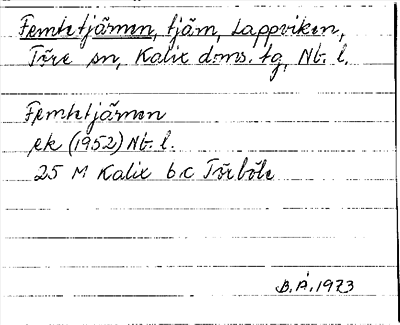 Femtetjärnen, tjärn, Lappviken,
Töre sn, Kalix doms. tg, Nb. l.
Femtetjärnen
ek (1952) Nb. l.
25 M Kalix b c Törböle
B.Å. 1973